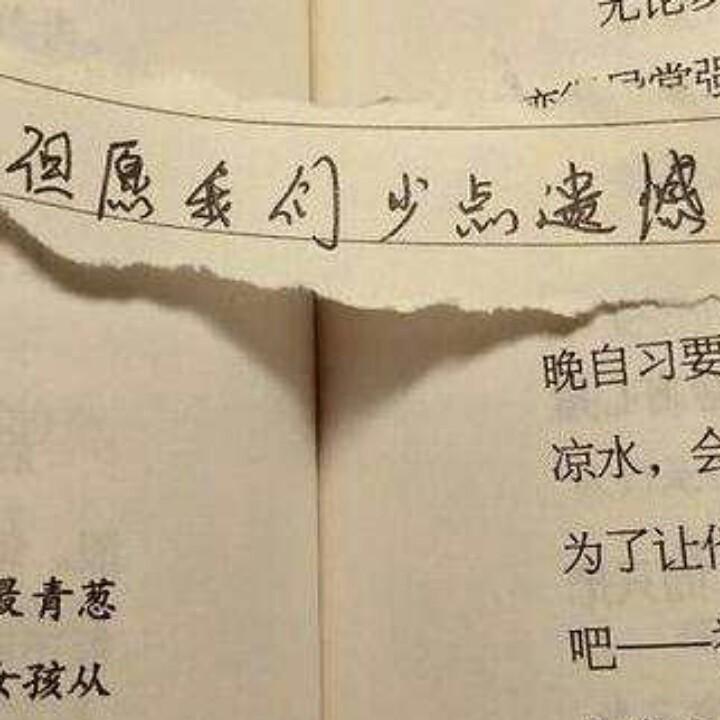 无论
但愿我们少点遗憾
晚自习要
凉水，会
为了让
吧——
最青葱
女孩从